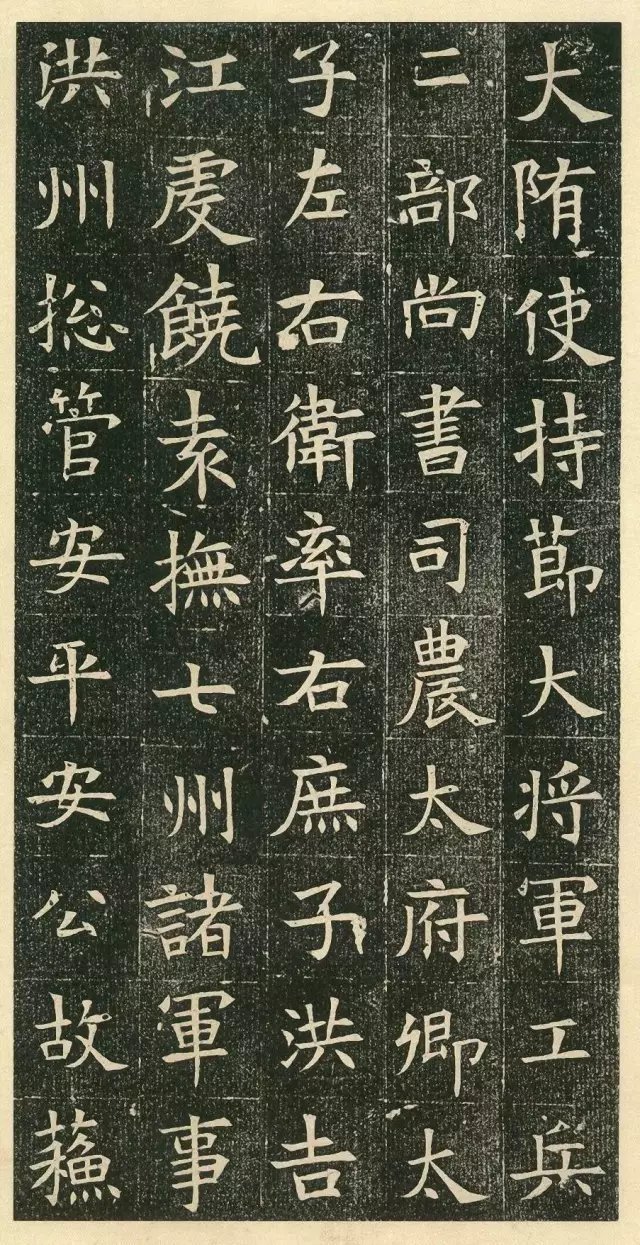 大隋使持莭大将軍工兵
二部尚書司農太府卿太
子左右衛率右庶子洪吉
江虔饒袁撫七州諸軍事
洪州揔管安平安公故蘓